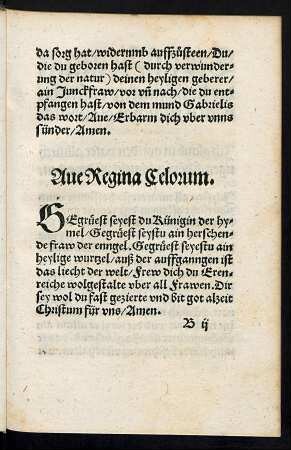 da sorg hat/widerumb auffzůsteen/Du/
die du geboren hast (durch verwunder-
ung der natur) deinen heyligen geberer/
ain Junckfraw/vor vñ nach/die du ent-
pfangen hast/von dem mund Gabrielis
das wort/Aue/Erbarm dich vber vnns
sünder/Amen.
Aue Regina Celorum.
GEgrüest seyest du Künigin der hy-
mel/Gegrüest seystu ain herschen-
de fraw der enngel. Gegrüest seyestu ain
heylige wurtzel/auß der auffganngen ist
das liecht der welt/Frew dich du Eren-
reiche wolgestalte vber all Frawen. Dir
sey wol du fast gezierte vnd bit got alzeit
Christum für vns/Amen.
B ij